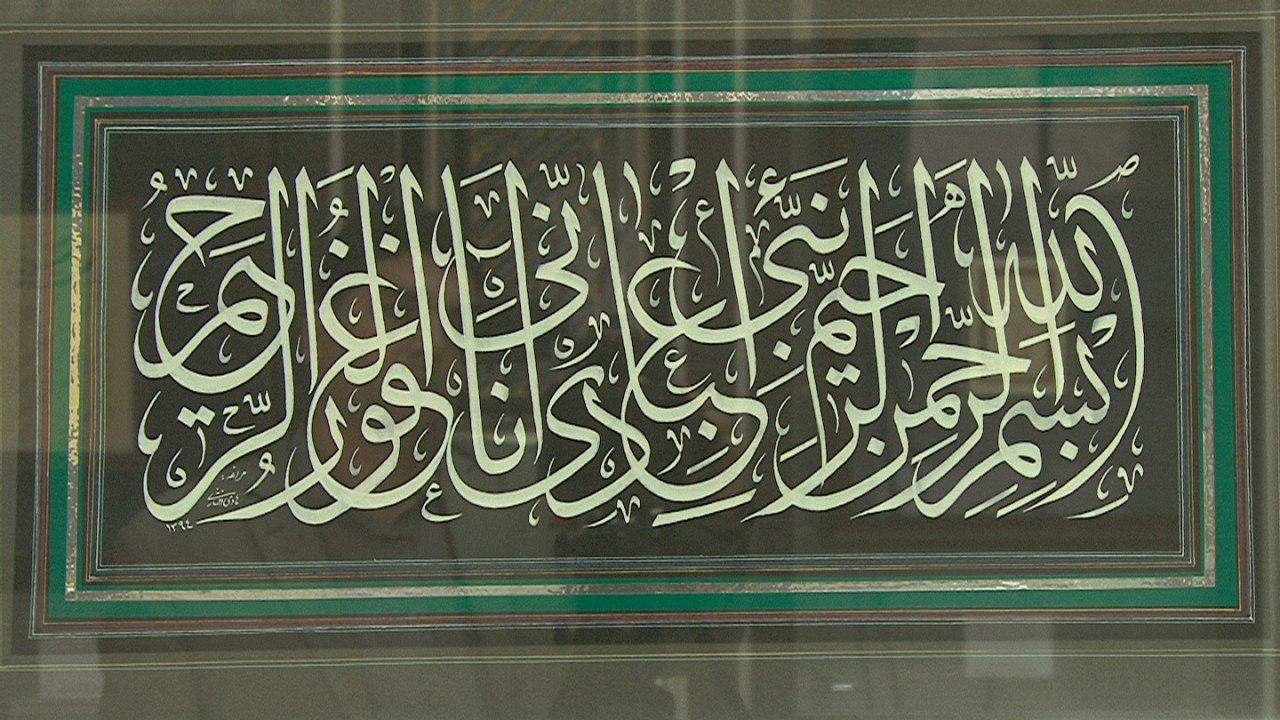 بِسْمِ اللّٰهِ الرَّحْمٰنِ الرَّحِيمِ
نَبِّئْ عِبَادِي أَنِّي أَنَا الْغَفُورُ الرَّحِيمُ
١٣٩٤